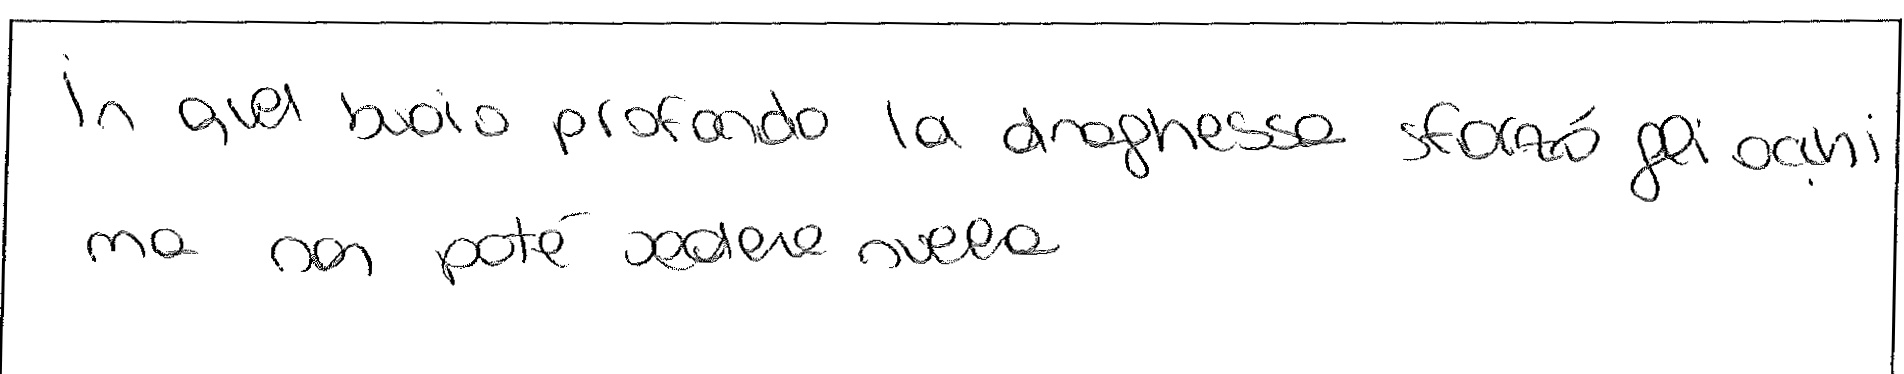 In quel buoio profondo la draghessa sforzó gli occhi
ma non poté vedere nulla